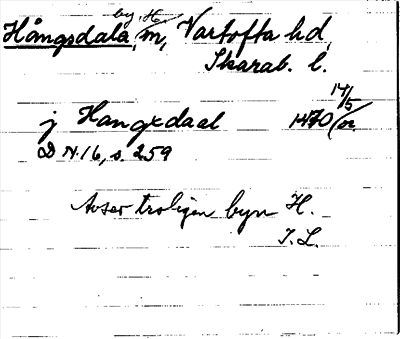 by, H
Hångsdala, m, Vartofta hd,
Skarab. l.
j Hangxdaal 1470 14/5 or.
DN 16, s. 259
Avser troligen byn H.
I. L.